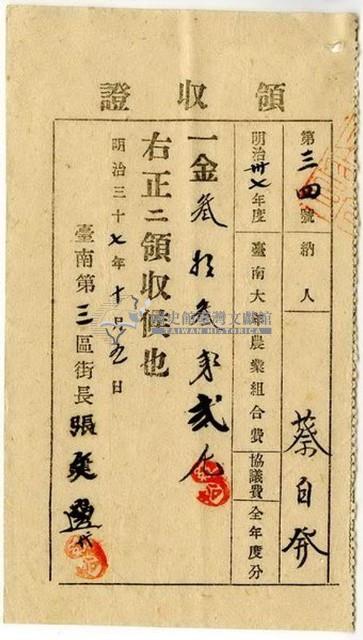 領收證
第三四號 納人 蔡自發
明治卅七年度 臺南大 農業組合費 協議費 全年度分
一金叁拾叁錢貳厘
右正ニ領收候也
明治三十七年十 日
臺南第三區街長 張
國史館臺灣文獻館
TAIWAN HISTORICA